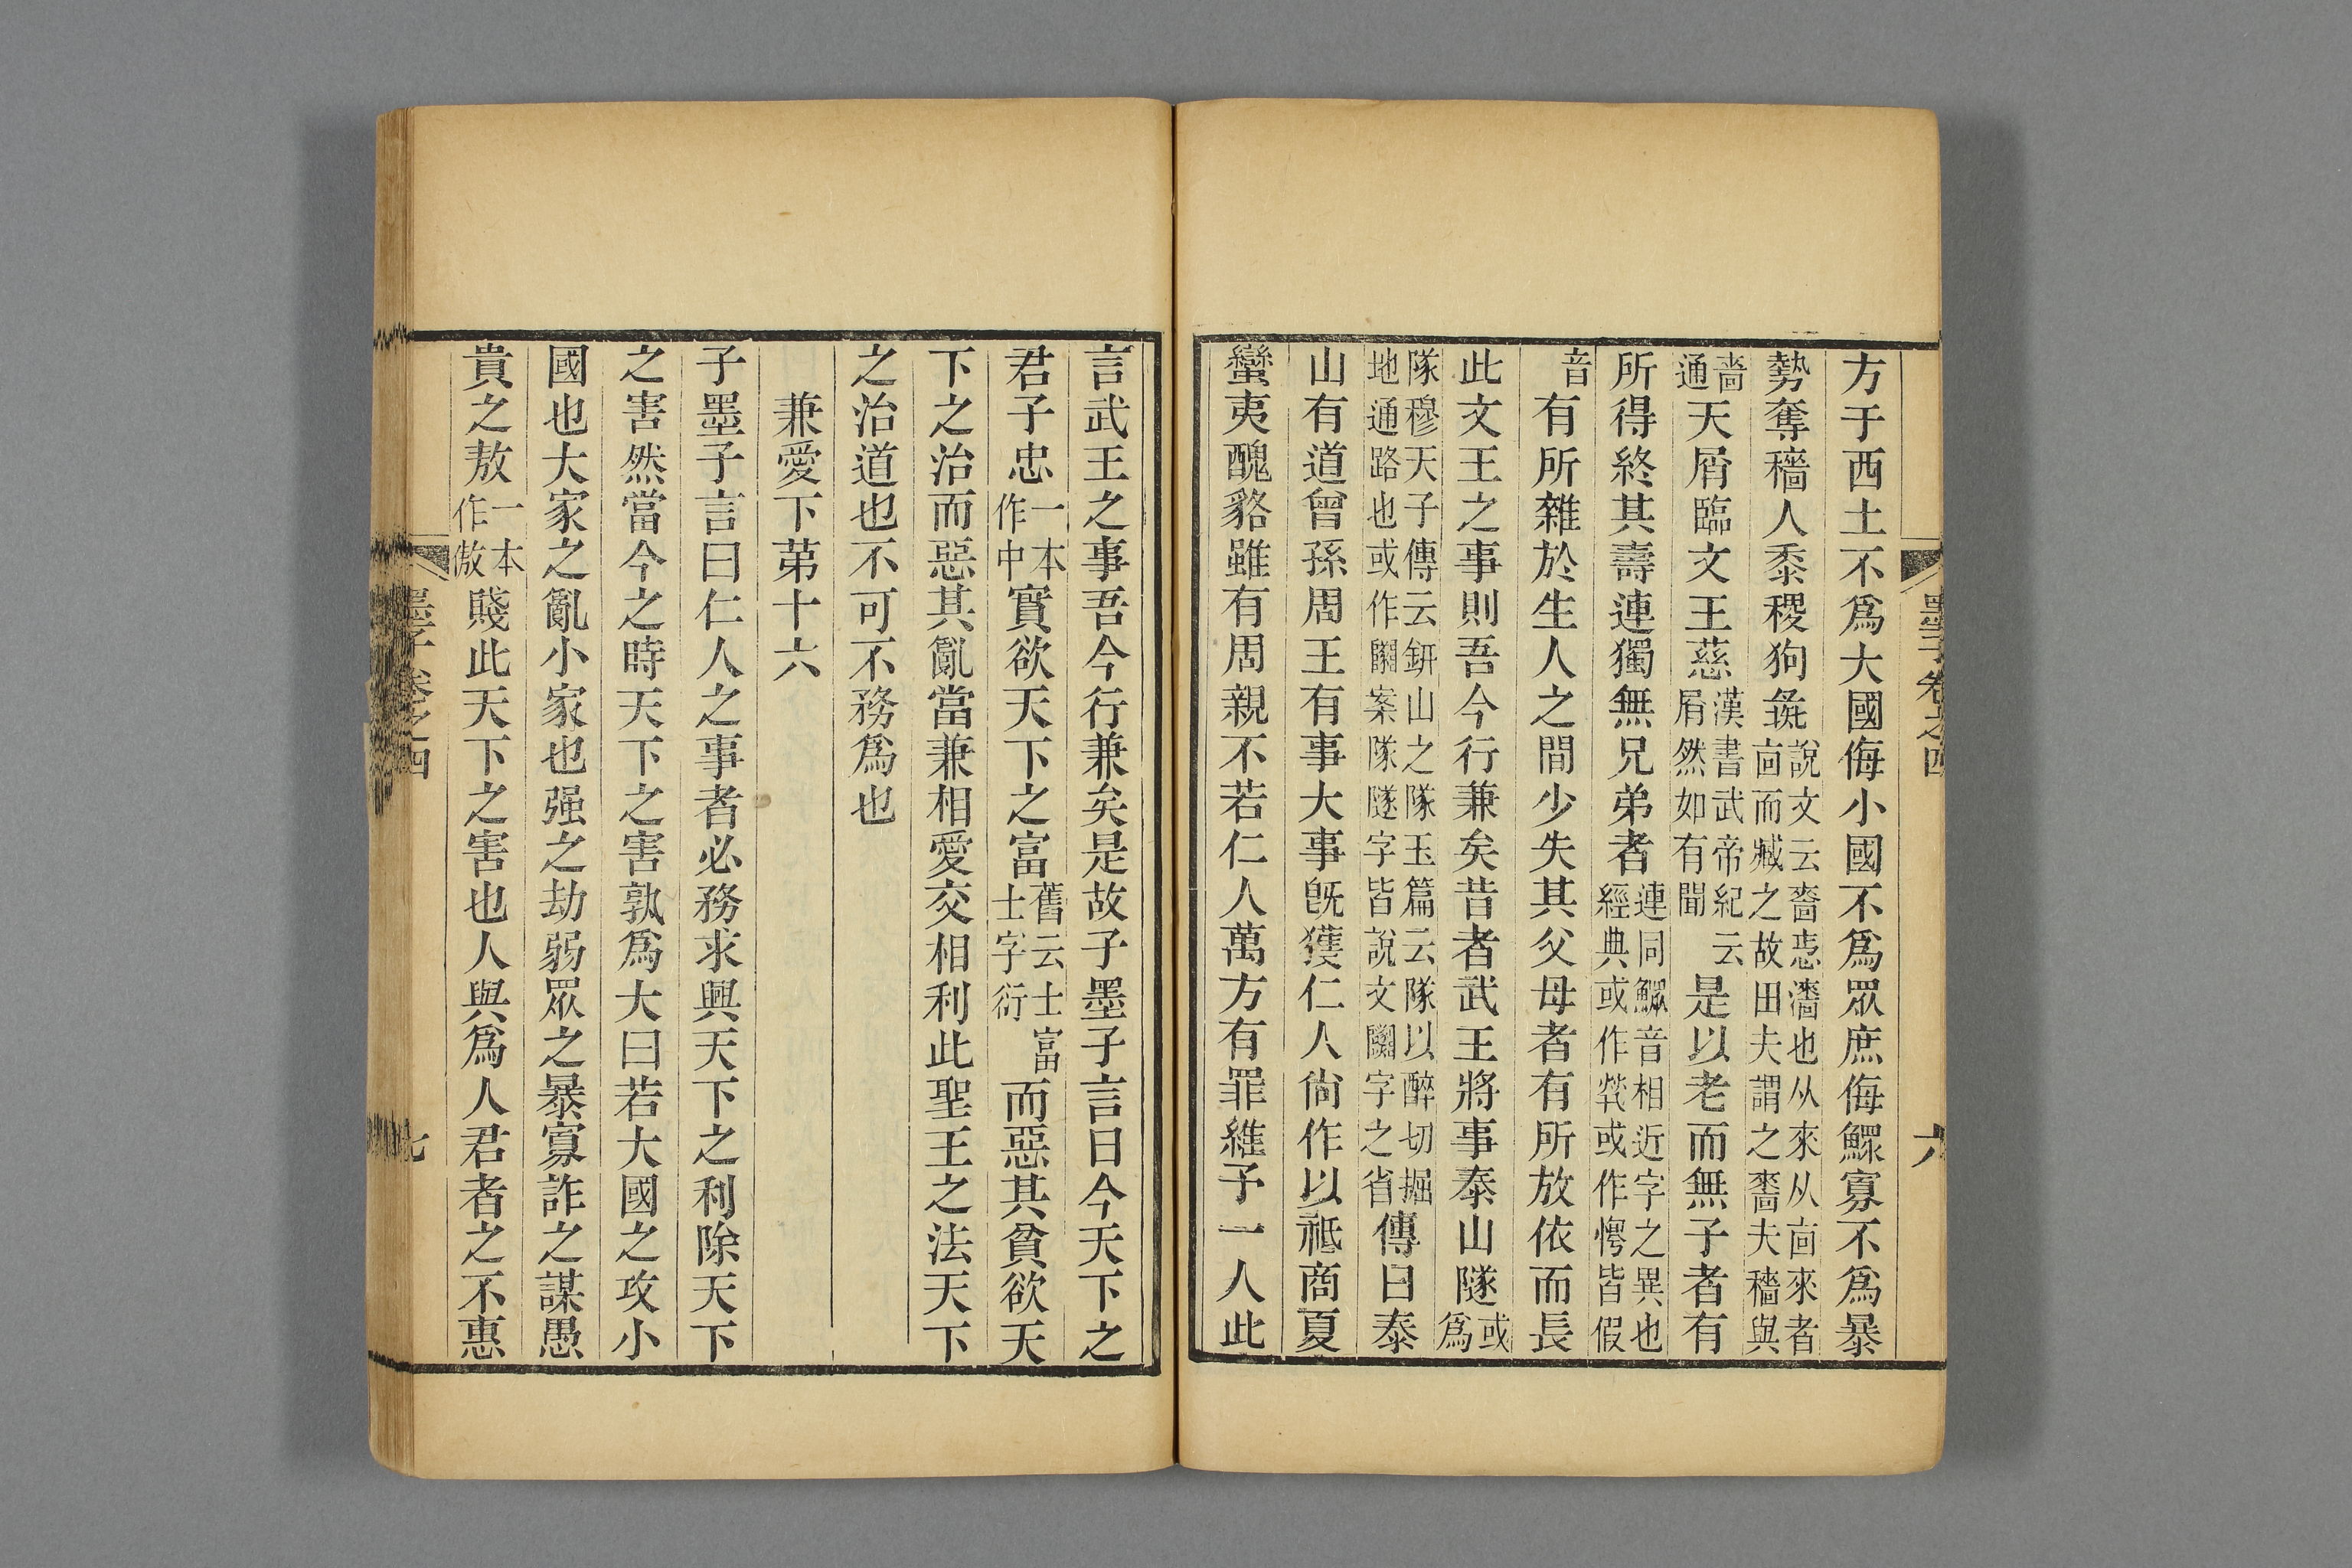 墨子卷之四　六
方于西土不爲大國侮小國不爲眾庶侮鰥寡不爲暴
勢奪穡人黍稷狗彘說文云嗇㤅濇也从來从㐭來者㐭而臧之故田夫謂之嗇夫穡與
嗇通天屑臨文王慈漢書武帝紀云屑然如有聞是以老而無子者有
所得終其壽連獨無兄弟者連同鰥音相近字之異也經典或作煢或作惸皆假
音有所雜於生人之間少失其父母者有所放依而長
此文王之事則吾今行兼矣昔者武王將事泰山隧或爲
隊穆天子傳云鈃山之隊玉篇云隊以醉切掘地通路也或作案隊隧字皆說文字之省傳曰泰
山有道曾孫周王有事大事旣獲仁人尙作以祗商夏
蠻夷醜貉雖有周親不若仁人萬方有罪維予一人此
言武王之事吾今行兼矣是故子墨子言曰今天下之
君子忠一本作中實欲天下之富舊云士富士字衍而惡其貧欲天
下之治而惡其亂當兼相愛交相利此聖王之法天下
之治道也不可不務爲也
兼愛下第十六
子墨子言曰仁人之事者必務求興天下之利除天下
之害然當今之時天下之害孰爲大曰若大國之攻小
國也大家之亂小家也强之劫弱眾之暴寡詐之謀愚
貴之敖一本作傲賤此天下之害也人與爲人君者之不惠
墨子卷之四　七